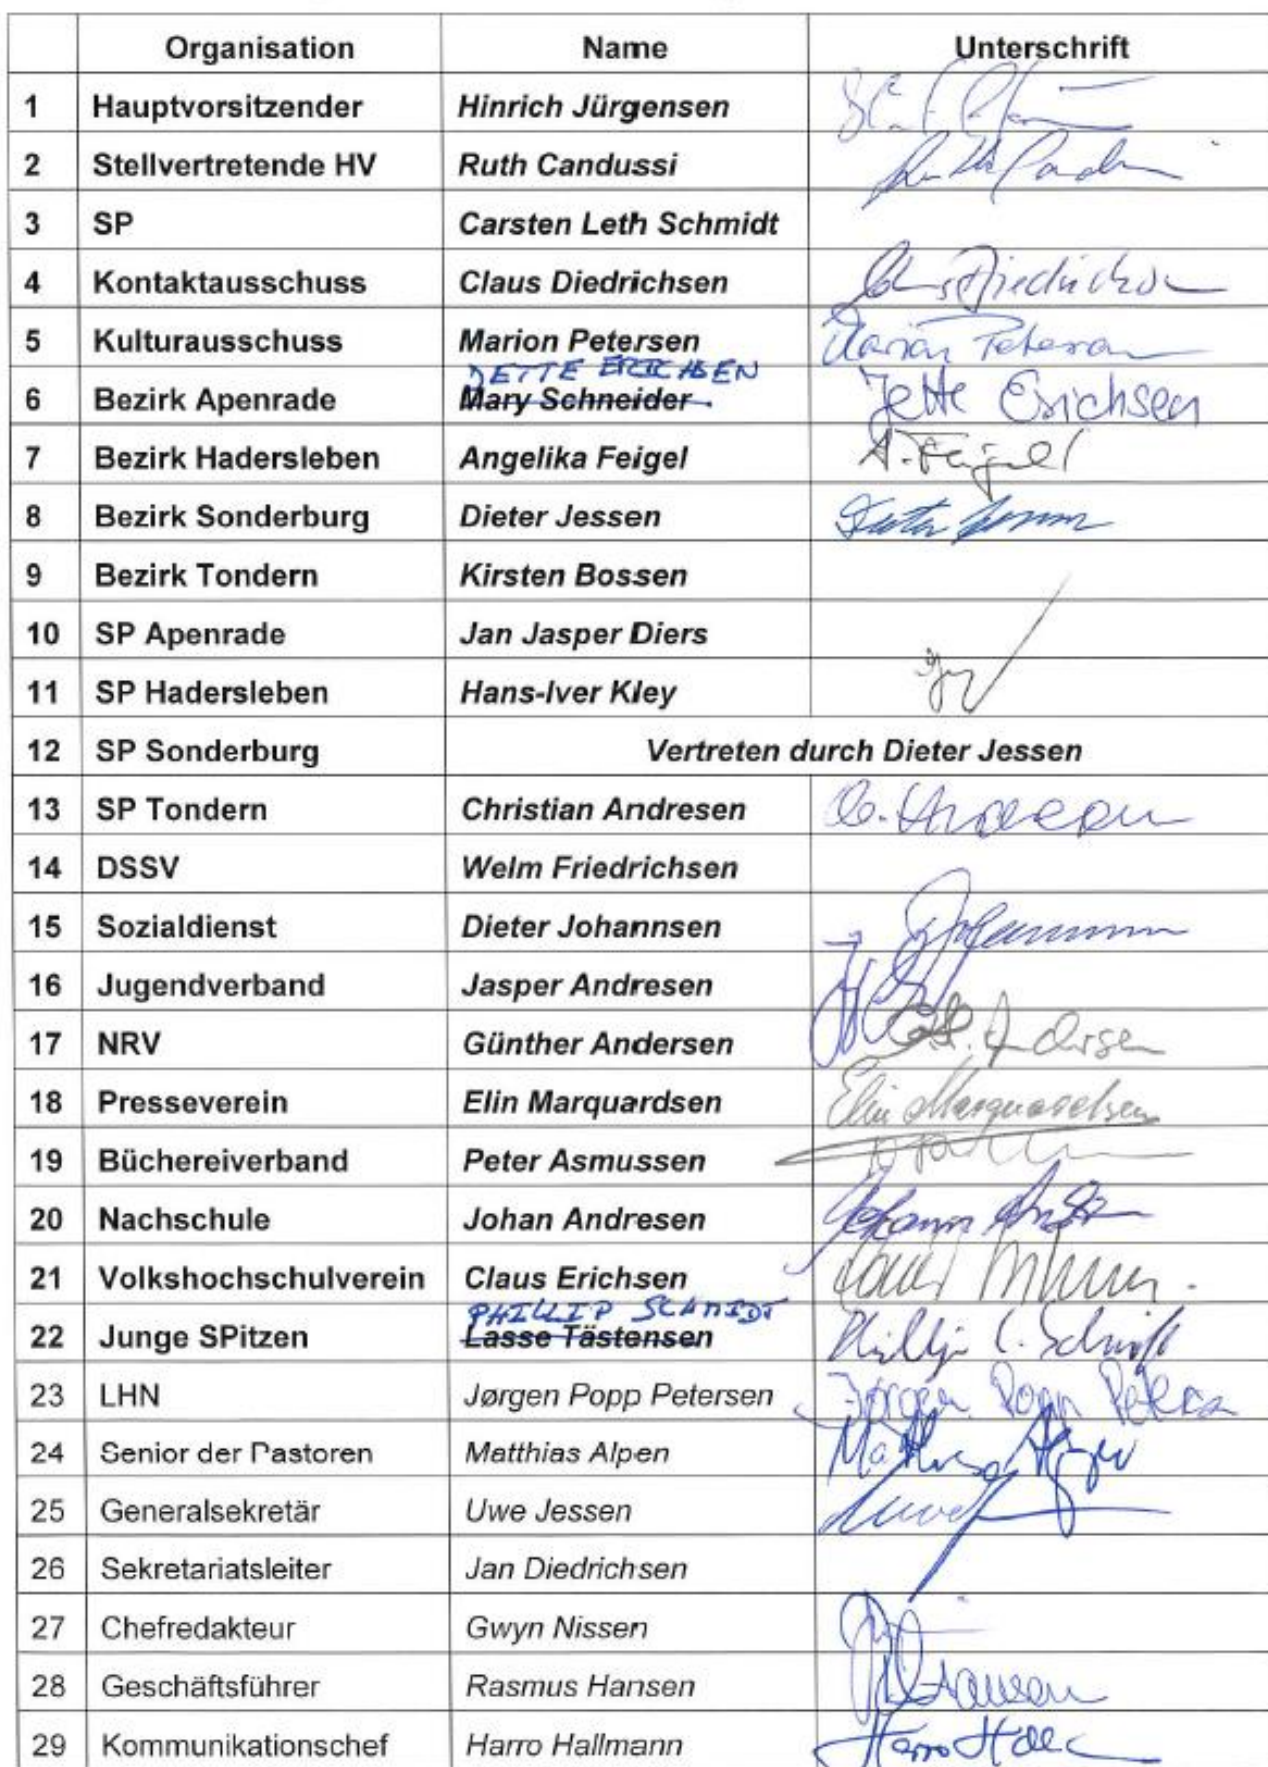 Organisation Name Unterschrift
1 Hauptvorsitzender Hinrich Jürgensen
2 Stellvertretende HV Ruth Candussi
3 SP Carsten Leth Schmidt
4 Kontaktausschuss Claus Diedrichsen Diedrichsen
5 Kulturausschuss Marion Petersen Marion Petersen
JETTE ERICHSEN
6 Bezirk Apenrade Mary Schneider Jette Erichsen
7 Bezirk Hadersleben Angelika Feigel A. Feigel
8 Bezirk Sonderburg Dieter Jessen Dieter Jessen
9 Bezirk Tondern Kirsten Bossen
10 SP Apenrade Jan Jasper Diers
11 SP Hadersleben Hans-Iver Kley
12 SP Sonderburg Vertreten durch Dieter Jessen
13 SP Tondern Christian Andresen C. Andresen
14 DSSV Welm Friedrichsen
15 Sozialdienst Dieter Johannsen Johannsen
16 Jugendverband Jasper Andresen
17 NRV Günther Andersen Andersen
18 Presseverein Elin Marquardsen Elin Marquardsen
19 Büchereiverband Peter Asmussen
20 Nachschule Johan Andresen
21 Volkshochschulverein Claus Erichsen
PHILLIP SCHMIDT
22 Junge SPitzen Lasse Tästensen Phillip C. Schmidt
23 LHN Jørgen Popp Petersen Jørgen Popp Petersen
24 Senior der Pastoren Matthias Alpen Matthias Alpen
25 Generalsekretär Uwe Jessen
26 Sekretariatsleiter Jan Diedrichsen
27 Chefredakteur Gwyn Nissen
28 Geschäftsführer Rasmus Hansen Hansen
29 Kommunikationschef Harro Hallmann Harro Hall